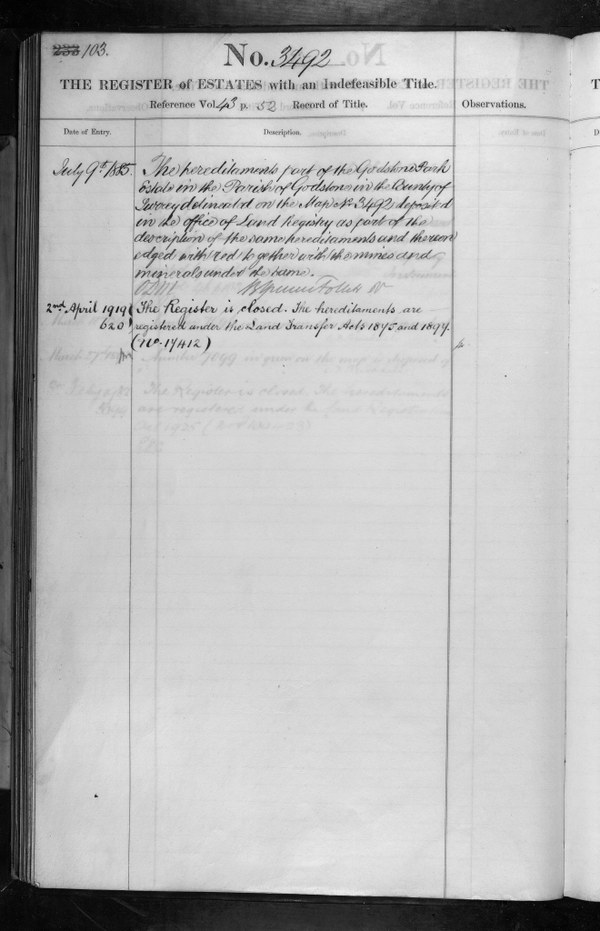 103.
No. 3492
THE REGISTER of ESTATES with an Indefeasible Title.
Reference Vol. 43 p. 52 Record of Title.
Observations.
Date of Entry.
Description.
July 9th 1885.
The hereditaments part of the Godstone Park
Estate in the Parish of Godstone in the County of
Surrey delineated on the Map No 3492 deposited
in the office of Land Registry as part of the
description of the same hereditaments and thereon
edged with red together with the mines and
minerals under the same.
2nd April 1919
620
The Register is closed. The hereditaments are
registered under the Land Transfer Acts 1875 and 1897.
(No. 17412)